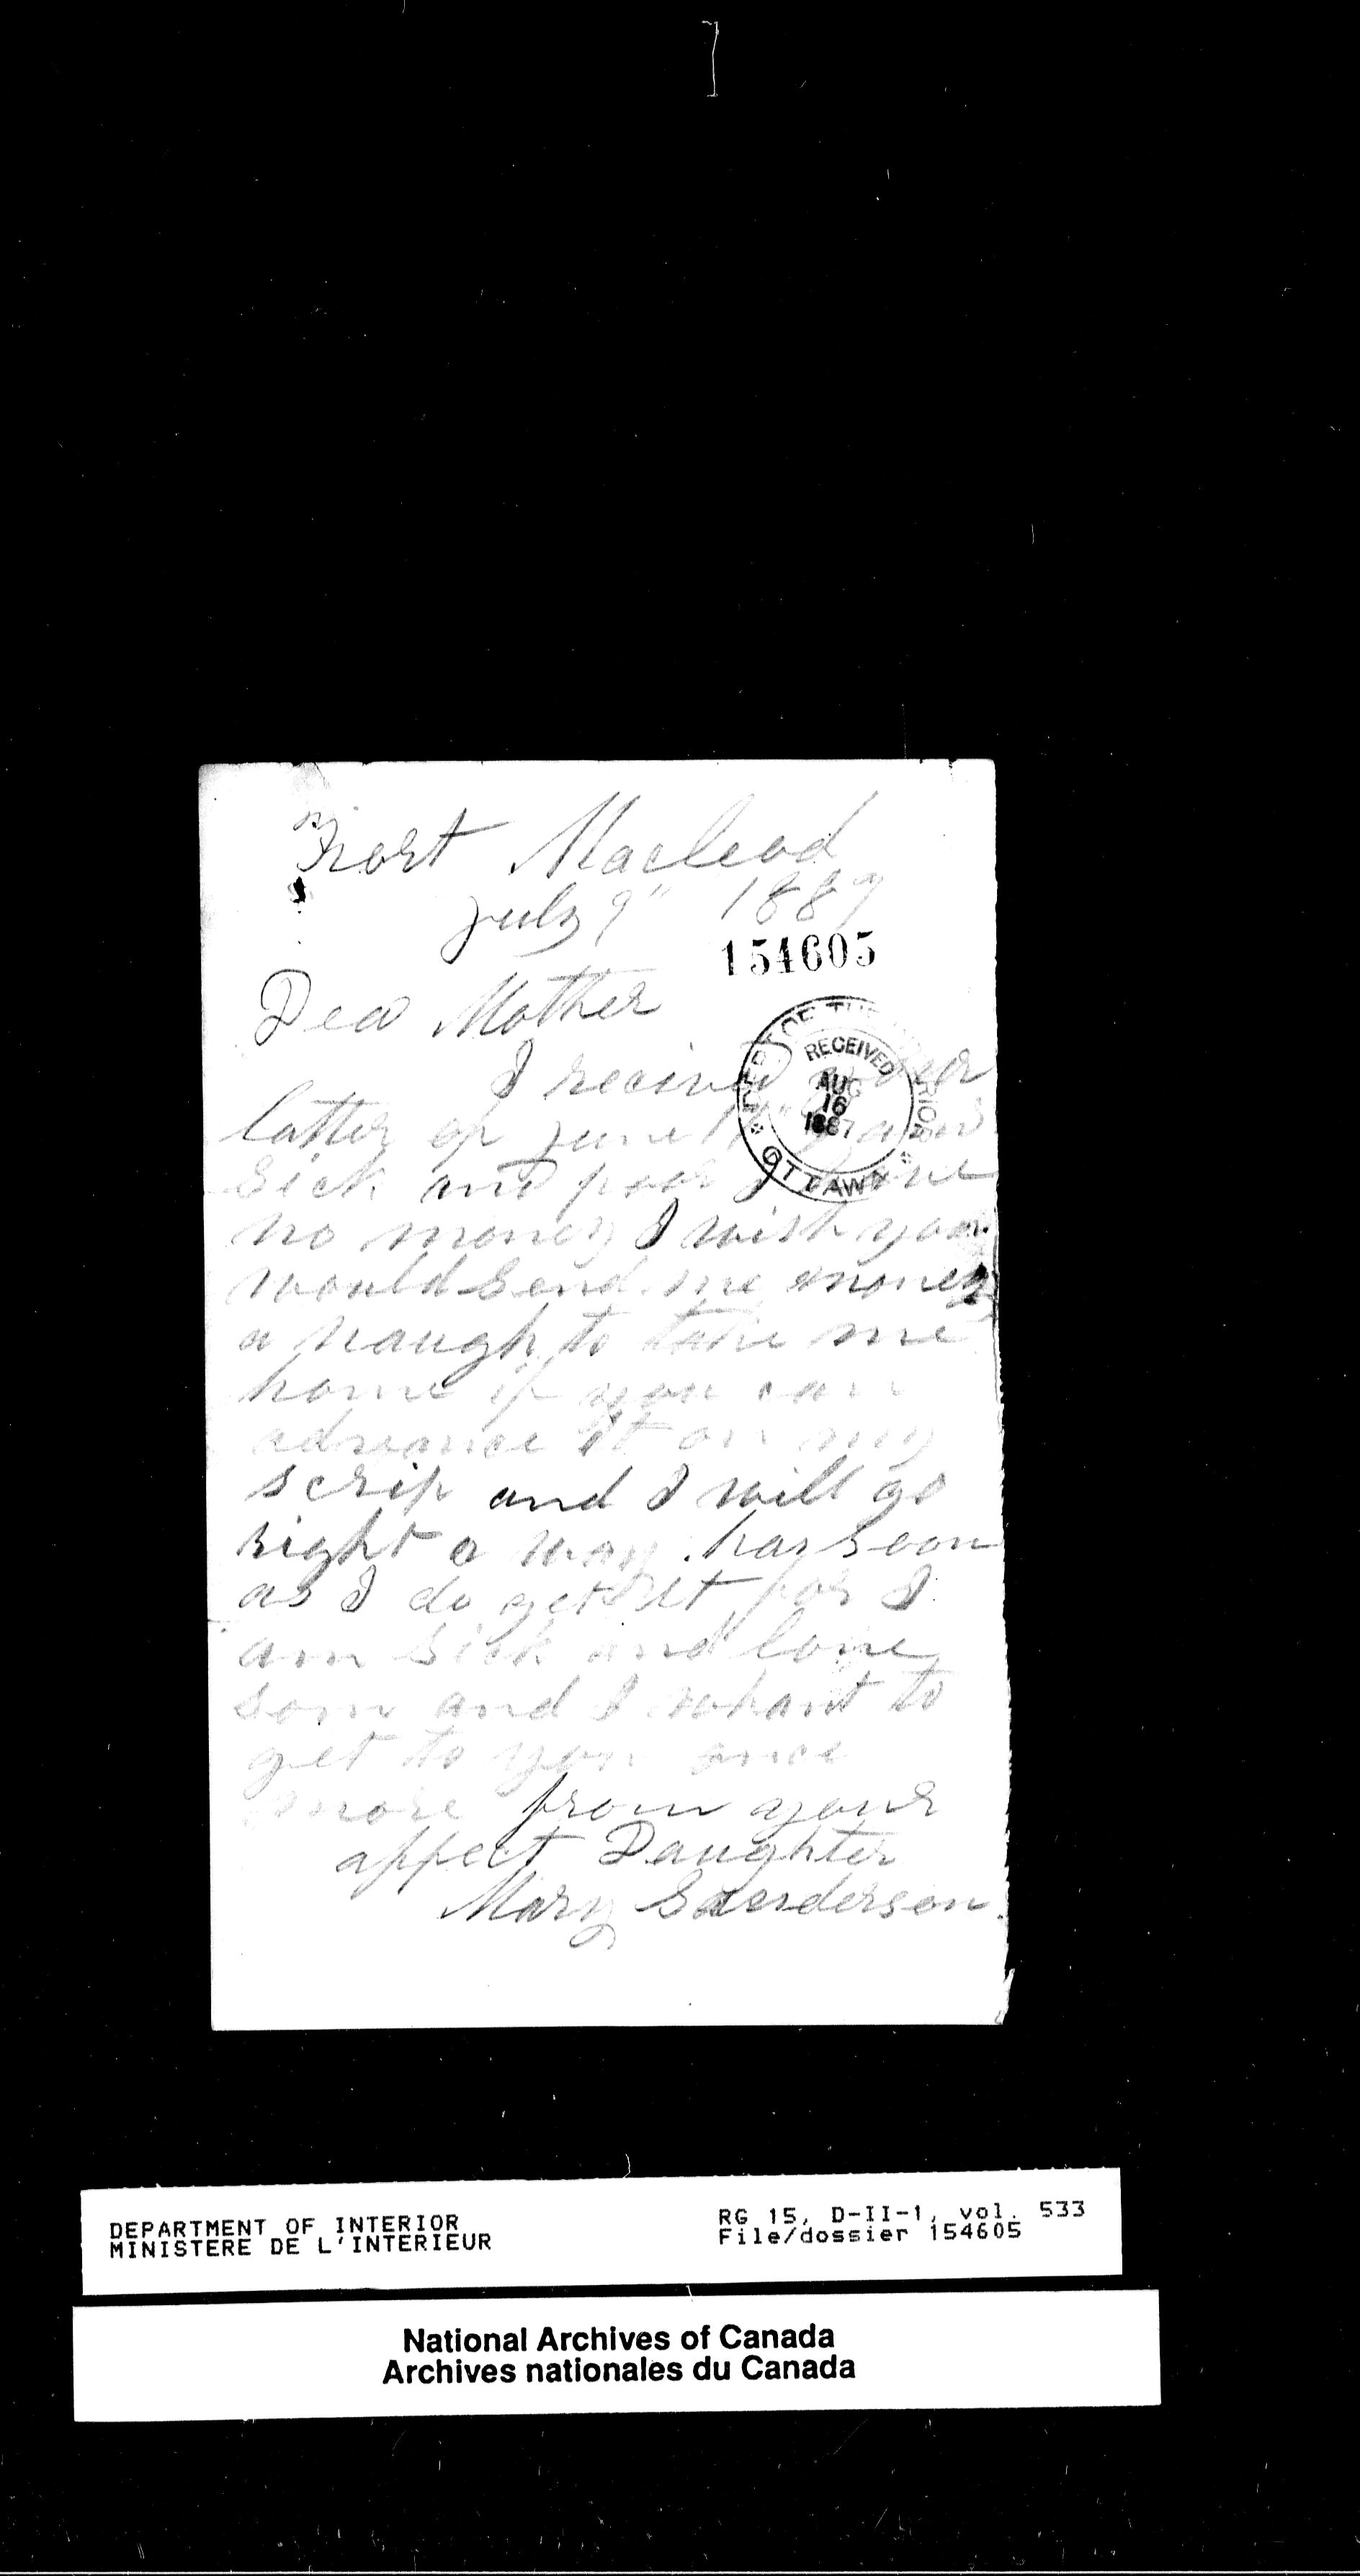 Fort Macleod
July 9" 1887
154605
Dear Mother
DEPT OF THE INTERIOR
RECEIVED
AUG
16
1887
OTTAWA
I recived your
latter of June I am
Sick and poor I have
no money I wish you
would send me money
a naugh to take me
home if you can
advance it on my
scrip and I will go
right a way has soon
as I do get it for I
am Sick and lone
som and I whant to
get to you once
more from your
affect Daughter
Mary Sanderson.
DEPARTMENT OF INTERIOR
MINISTERE DE L'INTERIEUR
RG 15, D-II-1, vol. 533
File/dossier 154605
National Archives of Canada
Archives nationales du Canada